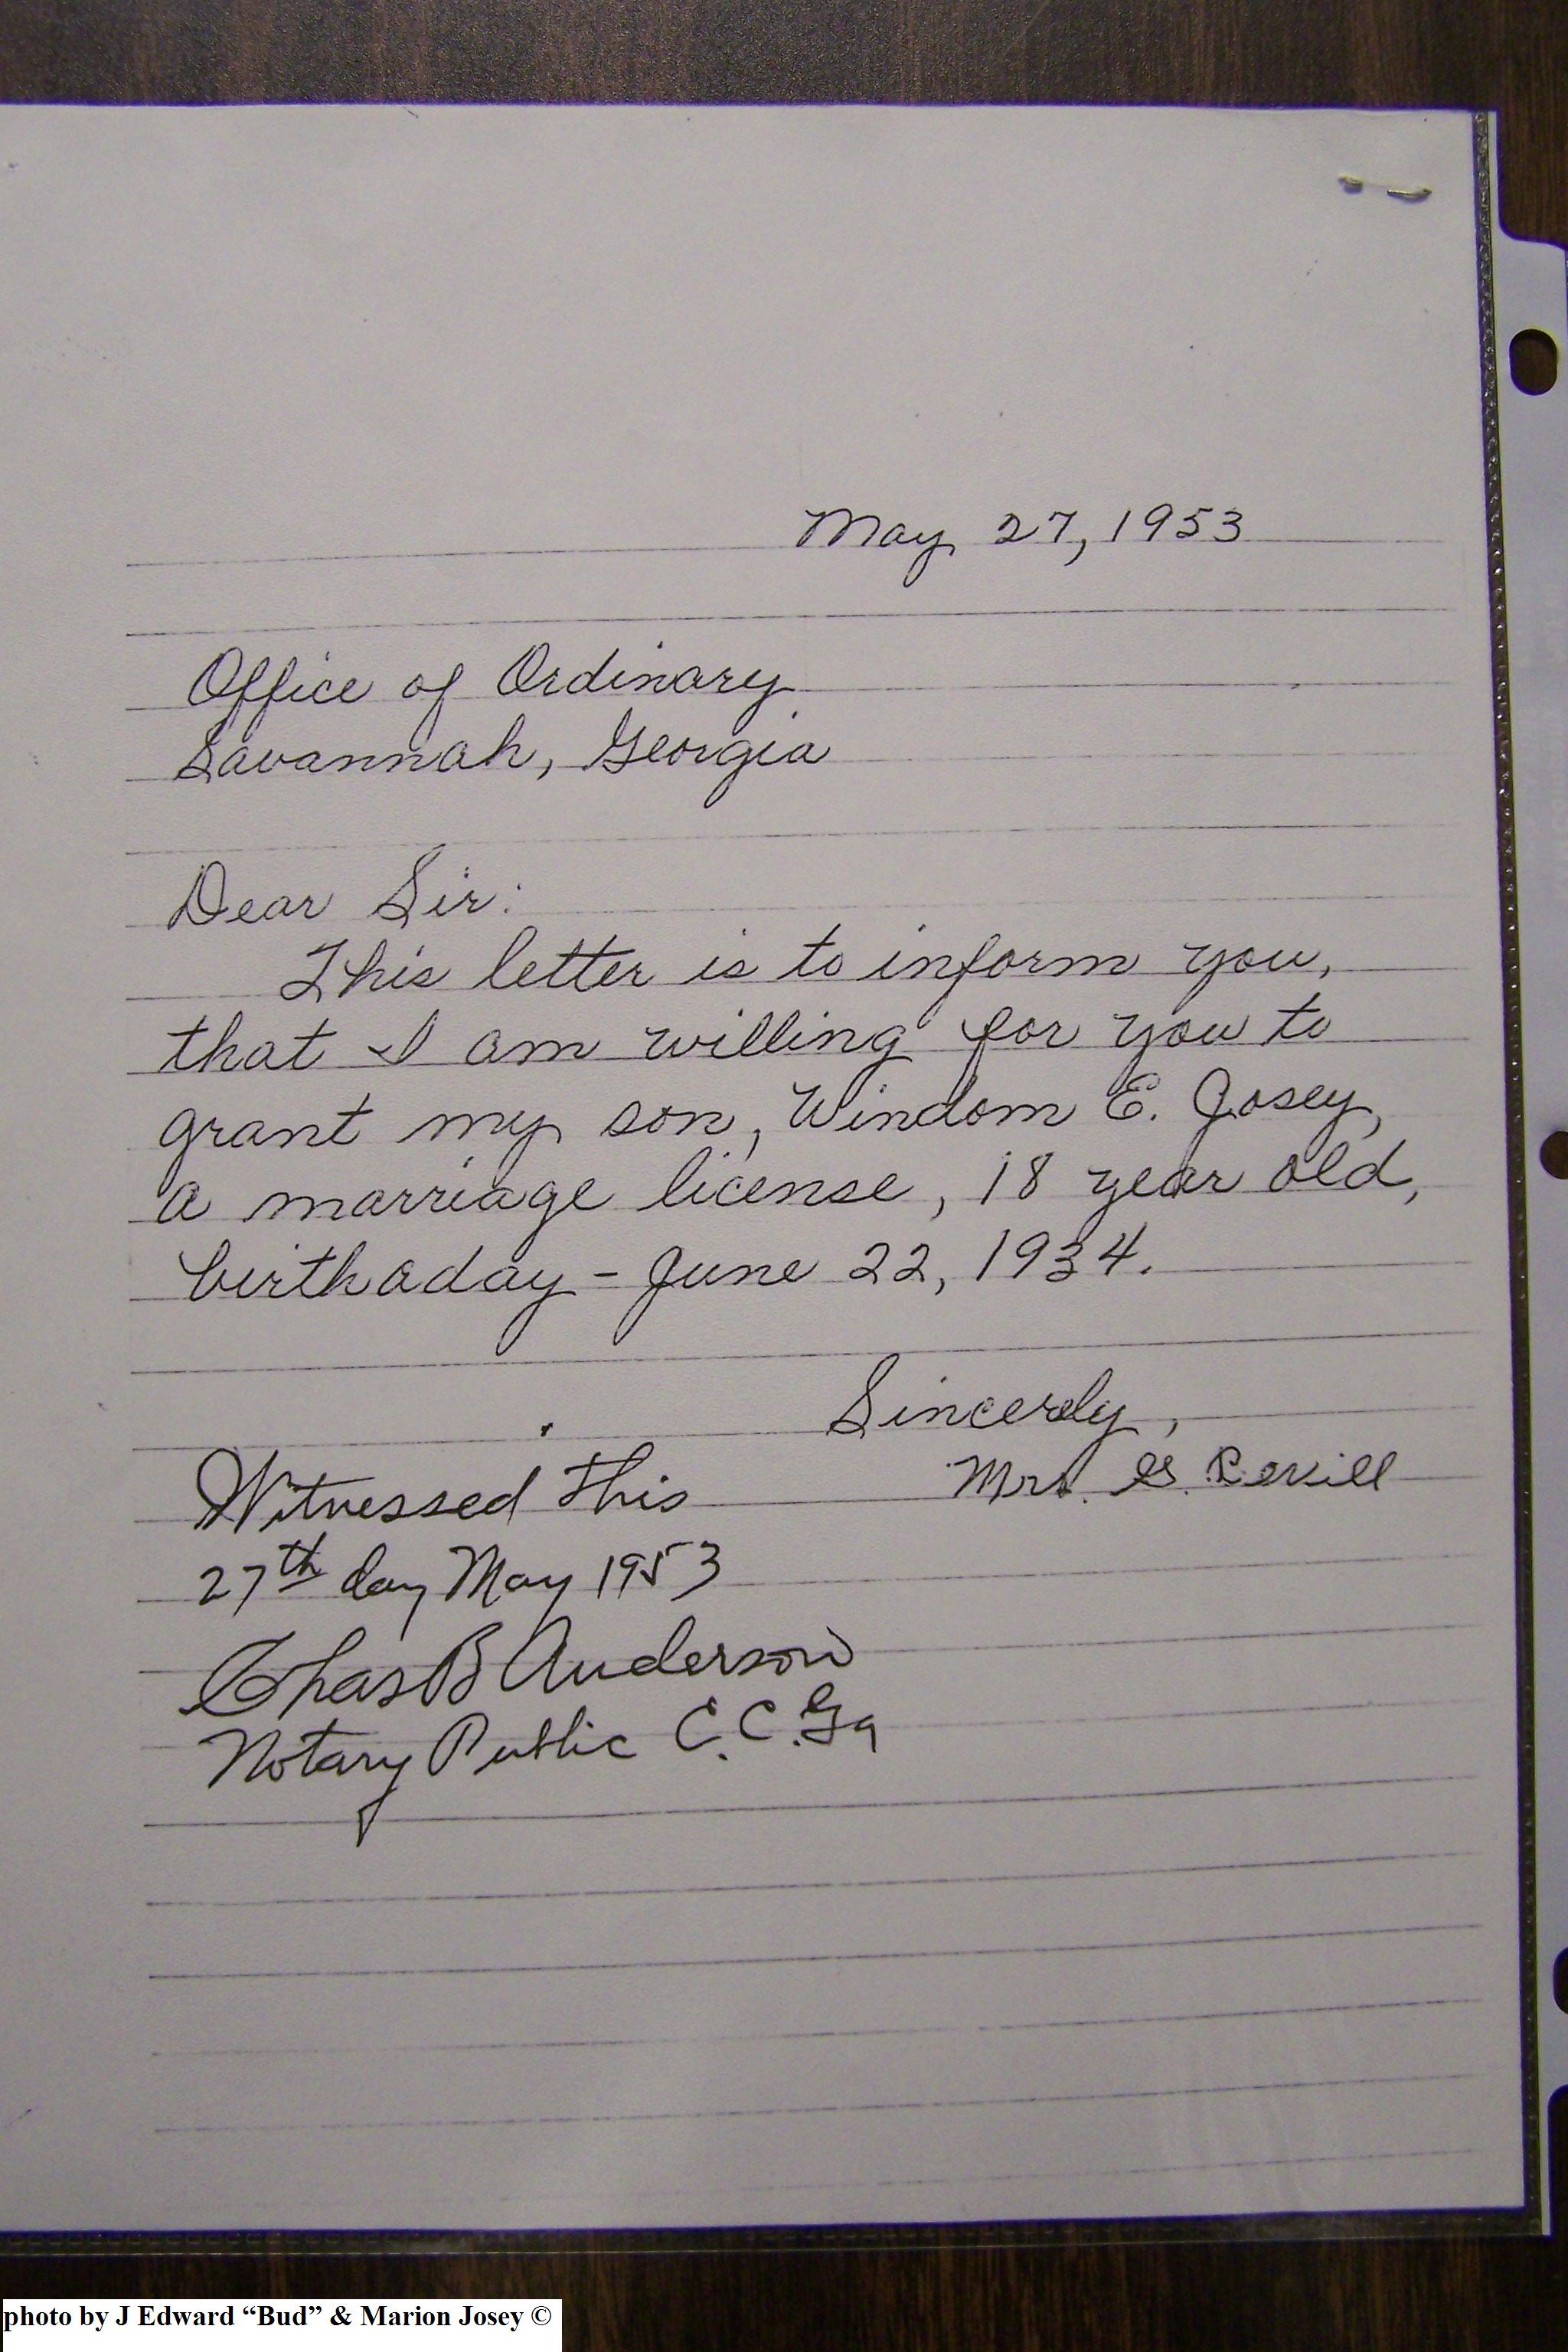 May 27, 1953
Office of Ordinary
Savannah, Georgia
Dear Sir:
This letter is to inform you,
that I am willing for you to
grant my son, Windom E. Josey,
a marriage license, 18 year old,
birthaday - June 22, 1934.
Sincerly,
Mrs. G.
Witnessed this
27th day May 1953
Chas B Anderson
Notary Public C.C. Ga
photo by J Edward “Bud” & Marion Josey ©